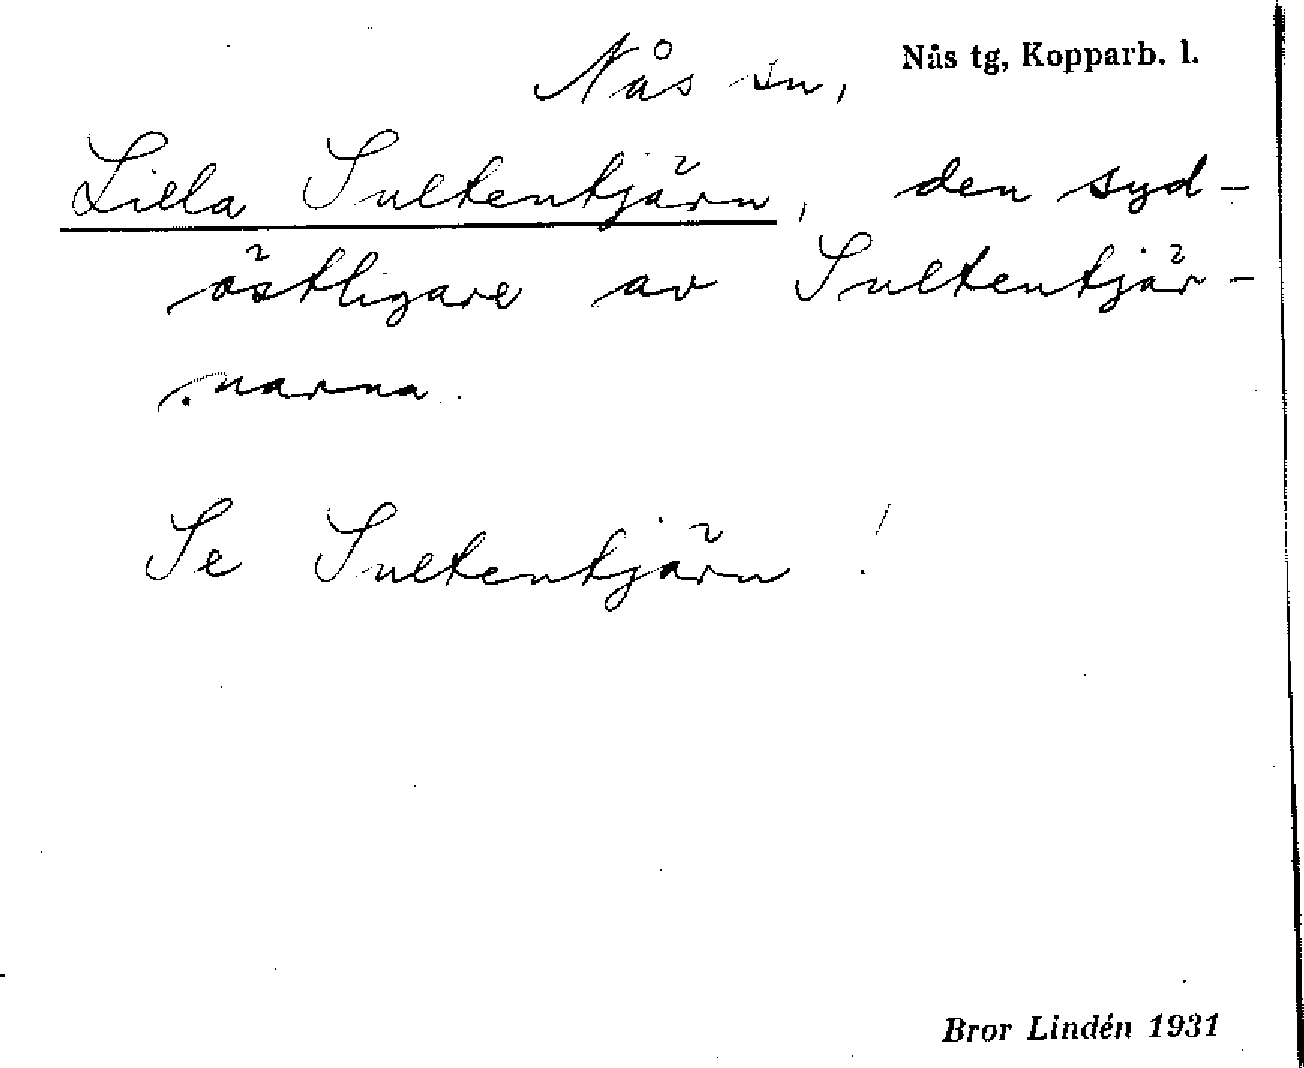 Nås sn,
Nås tg, Kopparb. l.
Lilla Sultentjärn, den syd-
östligare av Sultentjär-
narna.
Se Sultentjärn!
Bror Lindén 1931